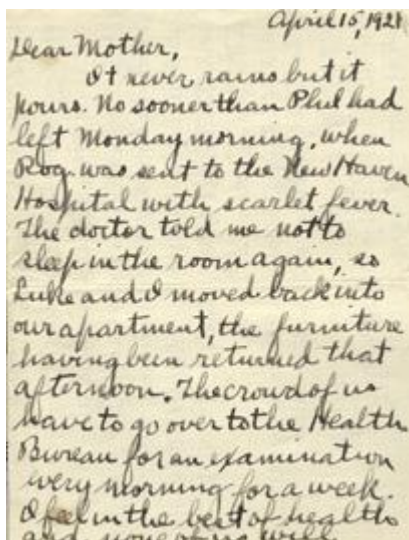 April 15, 1921
Dear Mother,
It never rains but it
pours. No sooner than Phil had
left Monday morning, when
Rog. was sent to the New Haven
Hospital with scarlet fever.
The doctor told me not to
sleep in the room again, so
Luke and I moved back into
our apartment, the furniture
having been returned that
afternoon. The crowd of us
have to go over to the Health
Bureau for an examination
every morning for a week.
I feel in the best of health
and none of us will